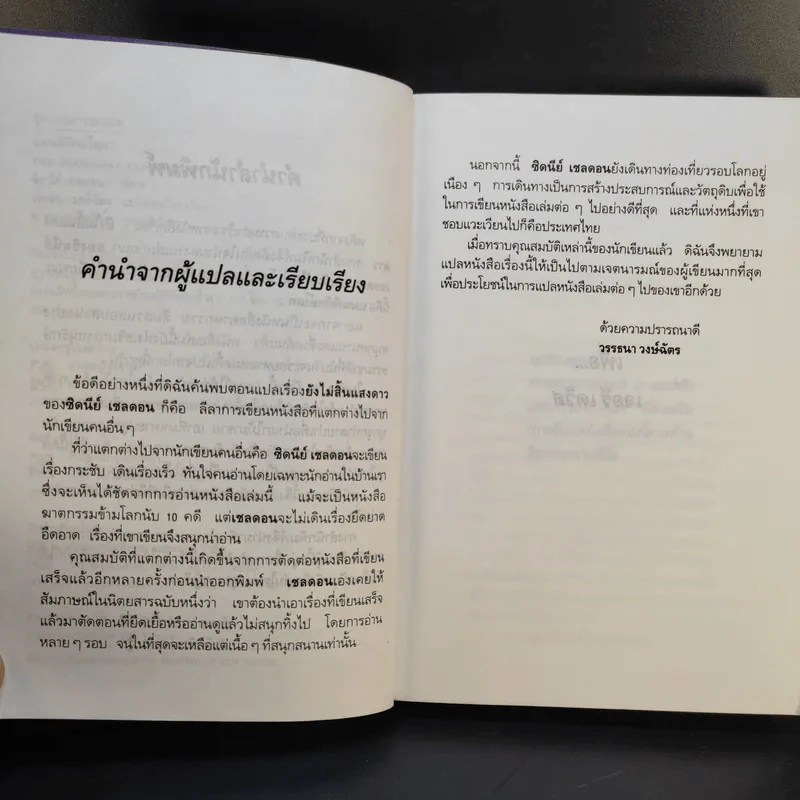 คำนำจากผู้แปลและเรียบเรียง
ข้อดีอย่างหนึ่งที่ดิฉันค้นพบตอนแปลเรื่องยังไม่สิ้นแสงดาว
ของซิดนีย์ เชลดอน ก็คือ ลีลาการเขียนหนังสือที่แตกต่างไปจาก
นักเขียนคนอื่น ๆ
ที่ว่าแตกต่างไปจากนักเขียนคนอื่นคือ ซิดนีย์ เชลดอนจะเขียน
เรื่องกระชับ เดินเรื่องเร็ว ทันใจคนอ่านโดยเฉพาะนักอ่านในบ้านเรา
ซึ่งจะเห็นได้ชัดจากการอ่านหนังสือเล่มนี้ แม้จะเป็นหนังสือ
ฆาตกรรมข้ามโลกนับ 10 คดี แต่เชลดอนจะไม่เดินเรื่องยืดยาด
อืดอาด เรื่องที่เขาเขียนจึงสนุกน่าอ่าน
คุณสมบัติที่แตกต่างนี้เกิดขึ้นจากการตัดต่อหนังสือที่เขียน
เสร็จแล้วอีกหลายครั้งก่อนนำออกพิมพ์ เชลดอนเองเคยให้
สัมภาษณ์ในนิตยสารฉบับหนึ่งว่า เขาต้องนำเอาเรื่องที่เขียนเสร็จ
แล้วมาตัดตอนที่ยืดเยื้อหรืออ่านดูแล้วไม่สนุกทิ้งไป โดยการอ่าน
หลาย ๆ รอบ จนในที่สุดจะเหลือแต่เนื้อ ๆ ที่สนุกสนานเท่านั้น
นอกจากนี้ ซิดนีย์ เชลดอนยังเดินทางท่องเที่ยวรอบโลกอยู่
เนือง ๆ การเดินทางเป็นการสร้างประสบการณ์และวัตถุดิบเพื่อใช้
ในการเขียนหนังสือเล่มต่อ ๆ ไปอย่างดีที่สุด และที่แห่งหนึ่งที่เขา
ชอบแวะเวียนไปก็คือประเทศไทย
เมื่อทราบคุณสมบัติเหล่านี้ของนักเขียนแล้ว ดิฉันจึงพยายาม
แปลหนังสือเรื่องนี้ให้เป็นไปตามเจตนารมณ์ของผู้เขียนมากที่สุด
เพื่อประโยชน์ในการแปลหนังสือเล่มต่อ ๆ ไปของเขาอีกด้วย
ด้วยความปรารถนาดี
วรรธนา วงษ์ฉัตร